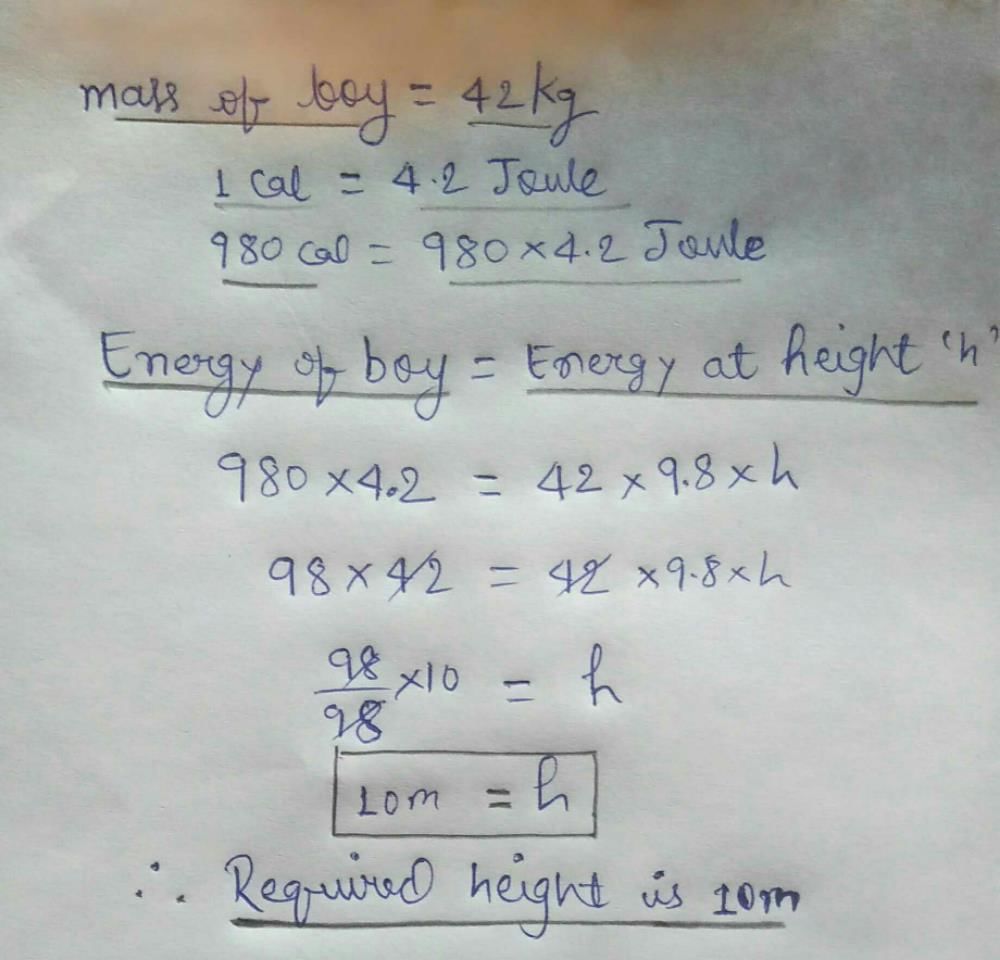 mass of boy = 42kg
1 Cal = 4.2 Joule
980 cal = 980×4.2 Joule
Energy of boy = Energy at height 'h'
980×4.2 = 42×9.8×h
98×42 = 42×9.8×h
98/98 ×10 = h
10m = h
∴ Required height is 10m